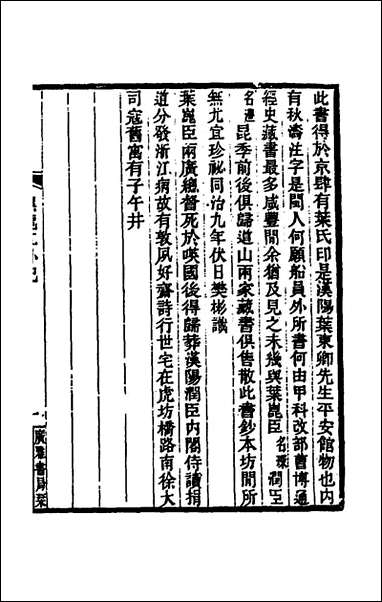 此書得於京肆有葉氏印是漢陽葉東卿先生平安館物也內
有秋濤注字是閩人何願船員外所書何由甲科改部曹博通
經史藏書最多咸豐間余猶及見之未幾與葉崑臣名琛潤臣
名澧昆季前後俱歸道山兩家藏書俱售散此書鈔本坊間所
無尤宜珍祕同治九年伏日樊彬識
葉崑臣兩廣總督死於㖤國後得歸葬漢陽潤臣內閣侍讀捐
道分發浙江病故有敦夙好齋詩行世宅在虎坊橋路南徐大
司寇舊寓有子午井
廣雅書局栞